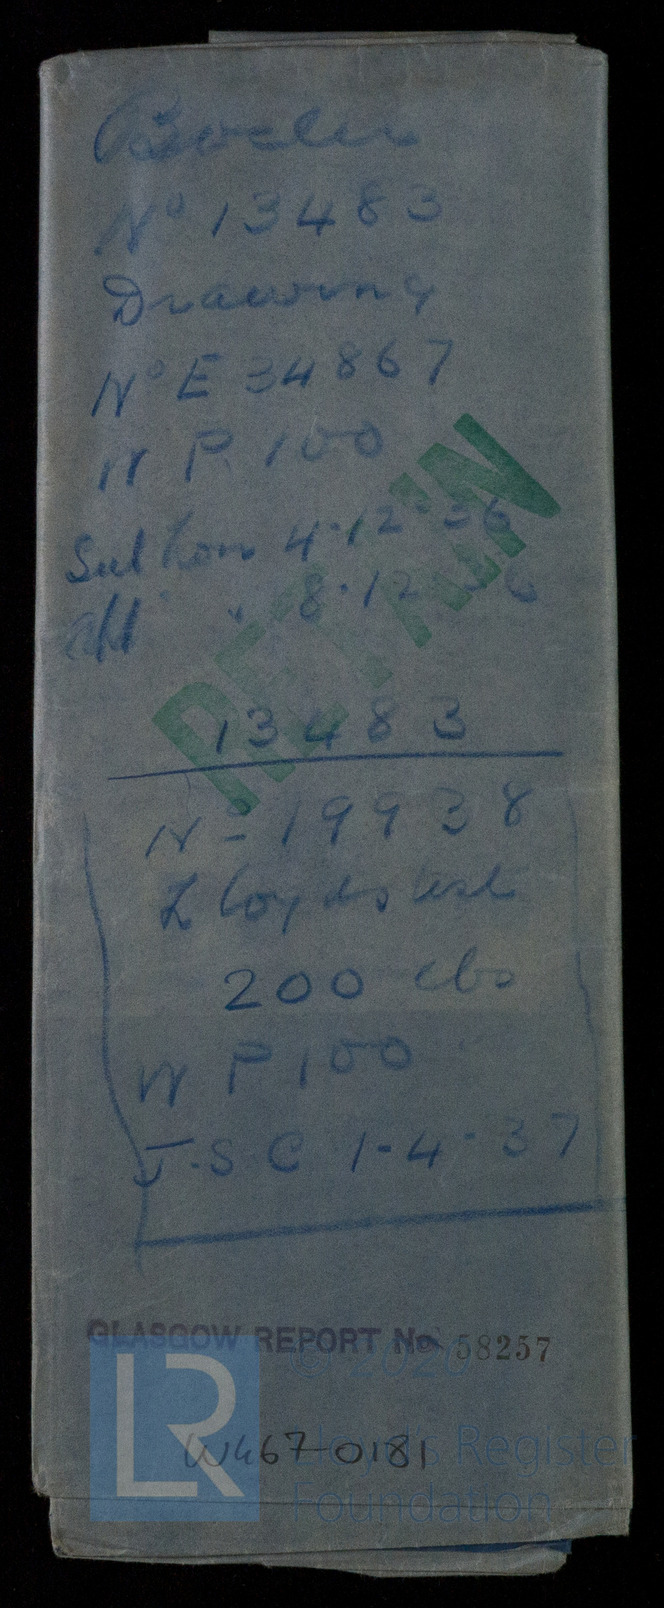 Boiler
No 13483
Drawing
No E 34867
W P 100
4·12·36
" 8·12·36
RETAIN
13483
No 19938
Lloyds test
200 lbs
W P 100
J.S.C 1-4-37
GLASGOW REPORT No 58257
© 2020
LR
W467-0181
Lloyd's Register
Foundation